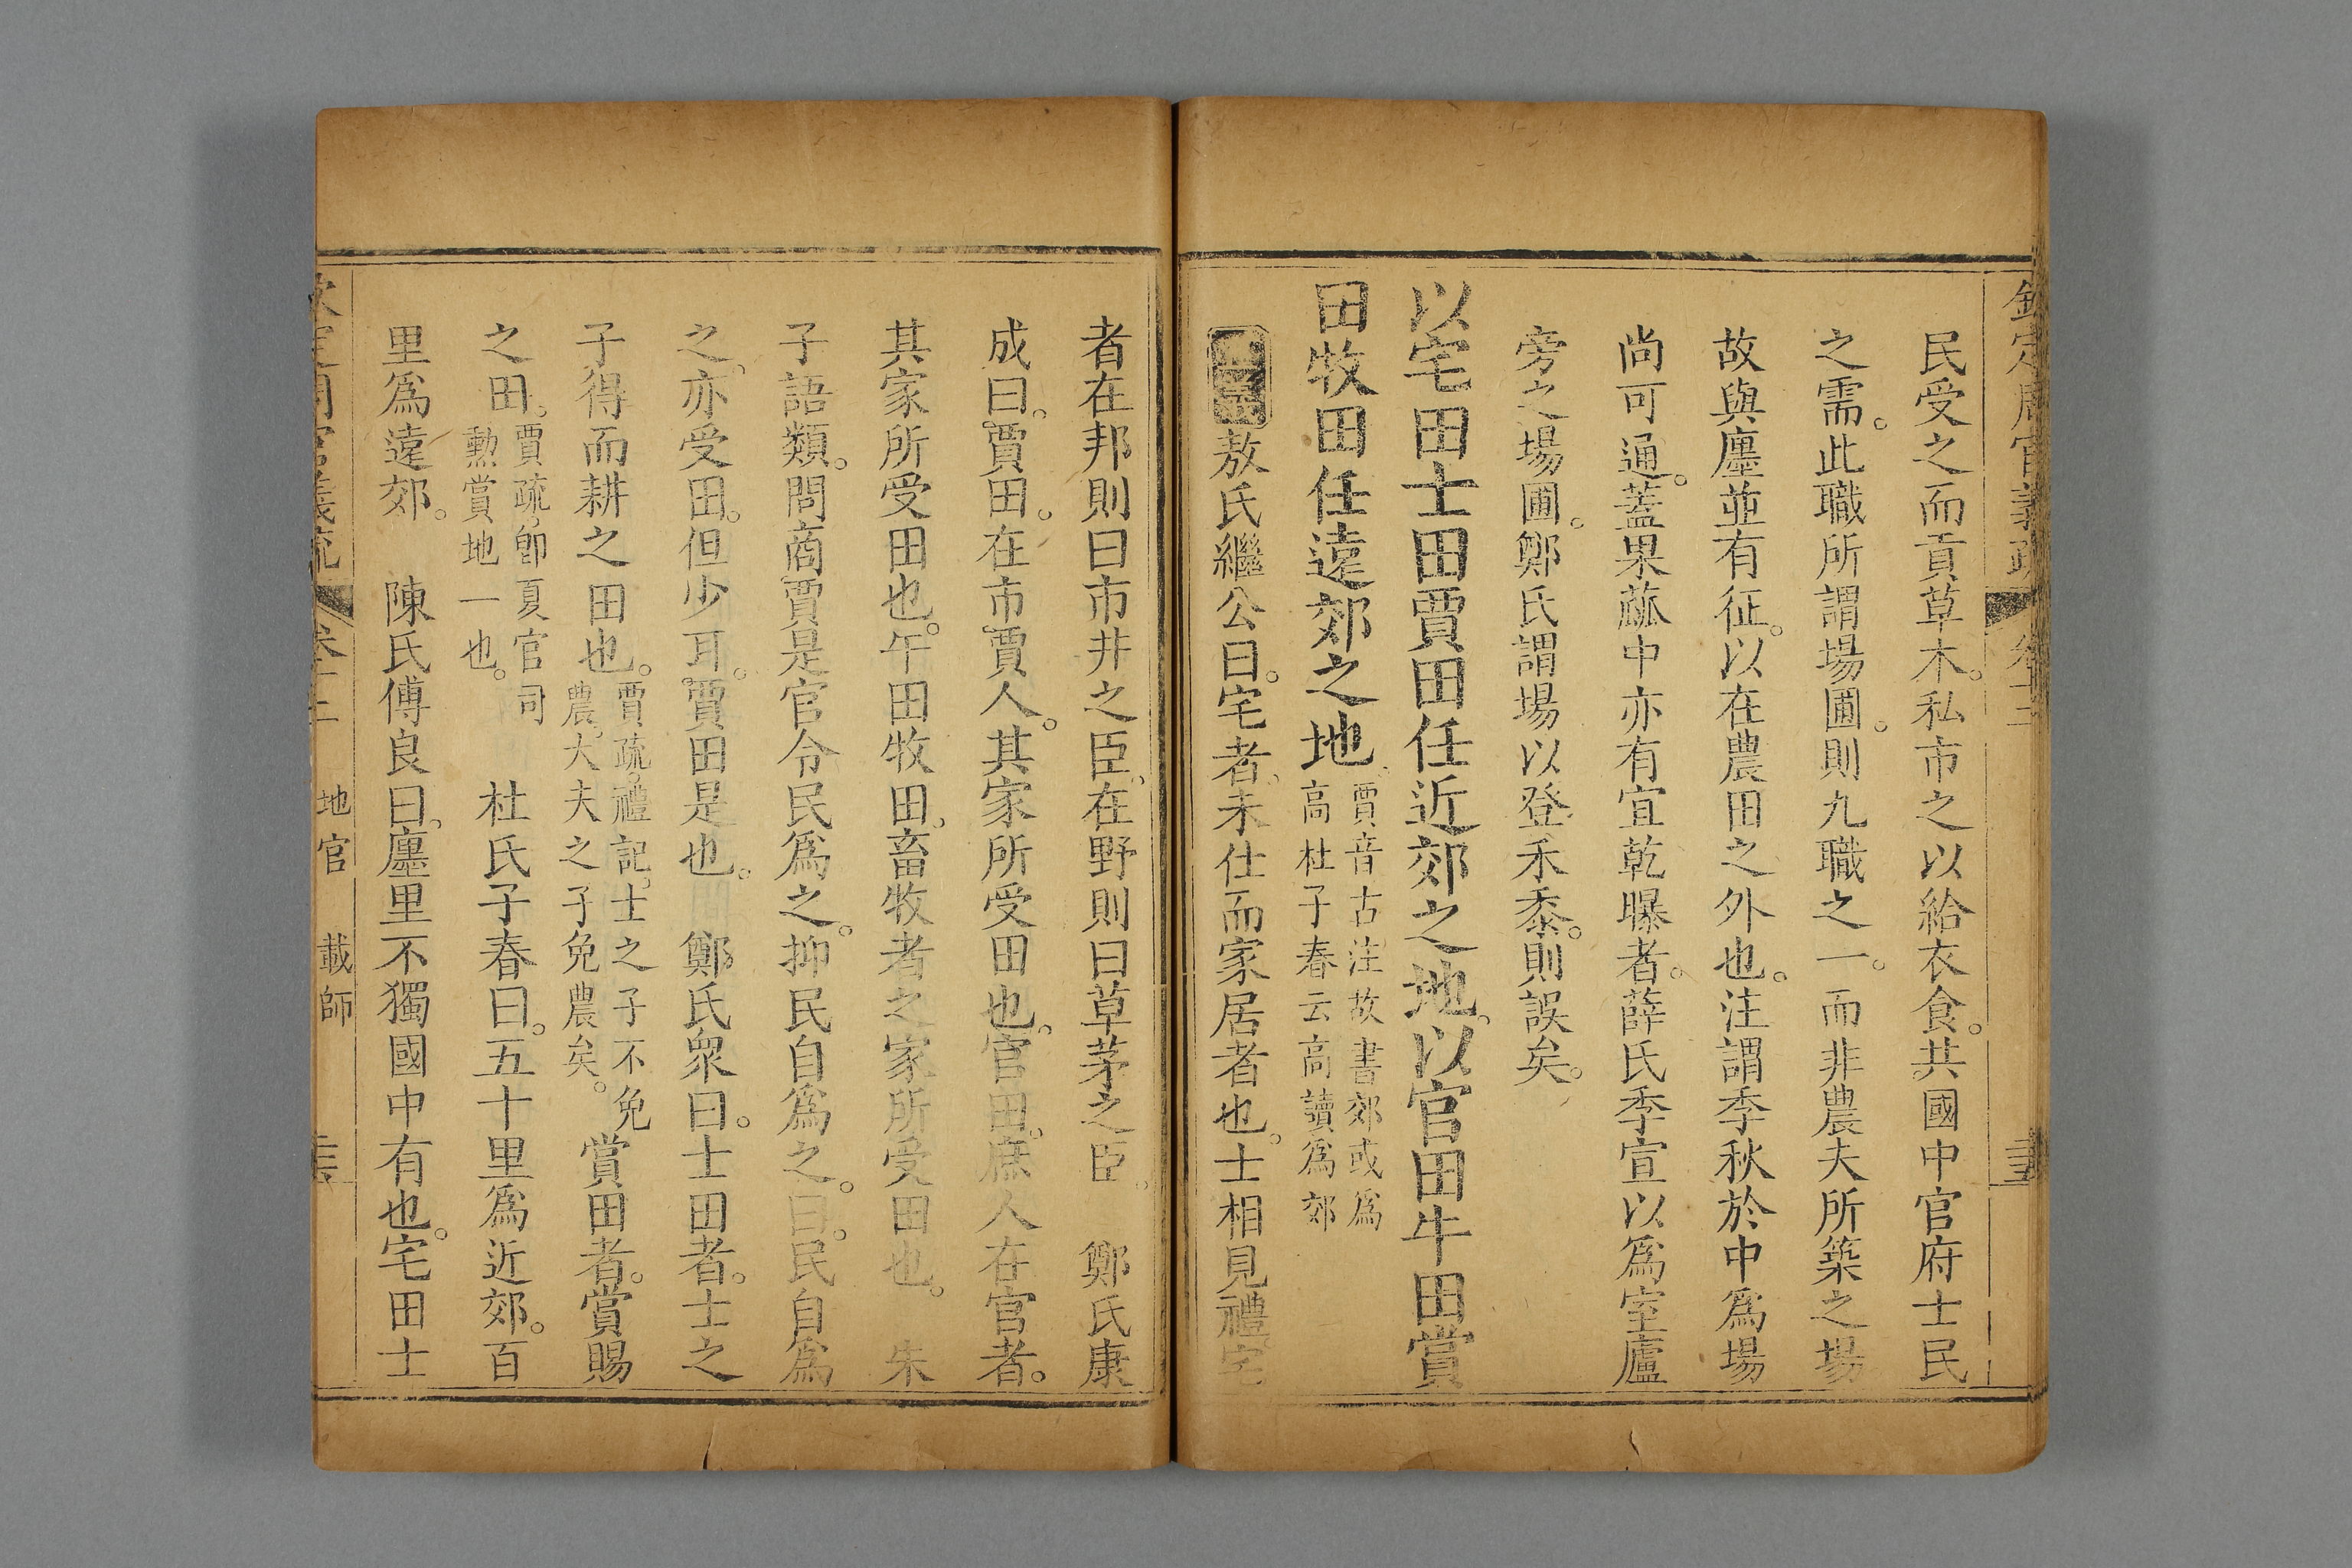 欽定周官義疏 卷十二
民受之而貢草木。私市之以給衣食。共國中官府士民
之需。此職所謂場圃。則九職之一。而非農夫所築之場
故與廛並有征。以在農田之外也。注謂季秋於中為場
尚可通。蓋果蓏中亦有宜乾曝者。薛氏季宣以為室廬
旁之場圃。鄭氏謂場以登禾黍。則誤矣。
以宅田士田賈田任近郊之地。以官田牛田賞
田牧田任遠郊之地。賈音古注故書郊或為
蒿杜子春云蒿讀為郊
敖氏繼公曰。宅者。未仕而家居者也。士相見禮。宅
者在邦則曰市井之臣。在野則曰草茅之臣。 鄭氏康
成曰。賈田。在市賈人。其家所受田也。官田。庶人在官者。
其家所受田也。牛田牧田。畜牧者之家所受田也。 朱
子語類。問商賈是官令民為之。抑民自為之。曰。民自為
之。亦受田。但少耳。賈田是也。 鄭氏眾曰。士田者。士之
子得而耕之田也。賈疏。禮記。士之子不免
農。大夫之子免農矣。賞田者。賞賜
之田。賈疏。即夏官司
勳賞地一也。 杜氏子春曰。五十里為近郊。百
里為遠郊。 陳氏傅良曰。廛里不獨國中有也。宅田士
周官義疏 卷十二 地官 載師